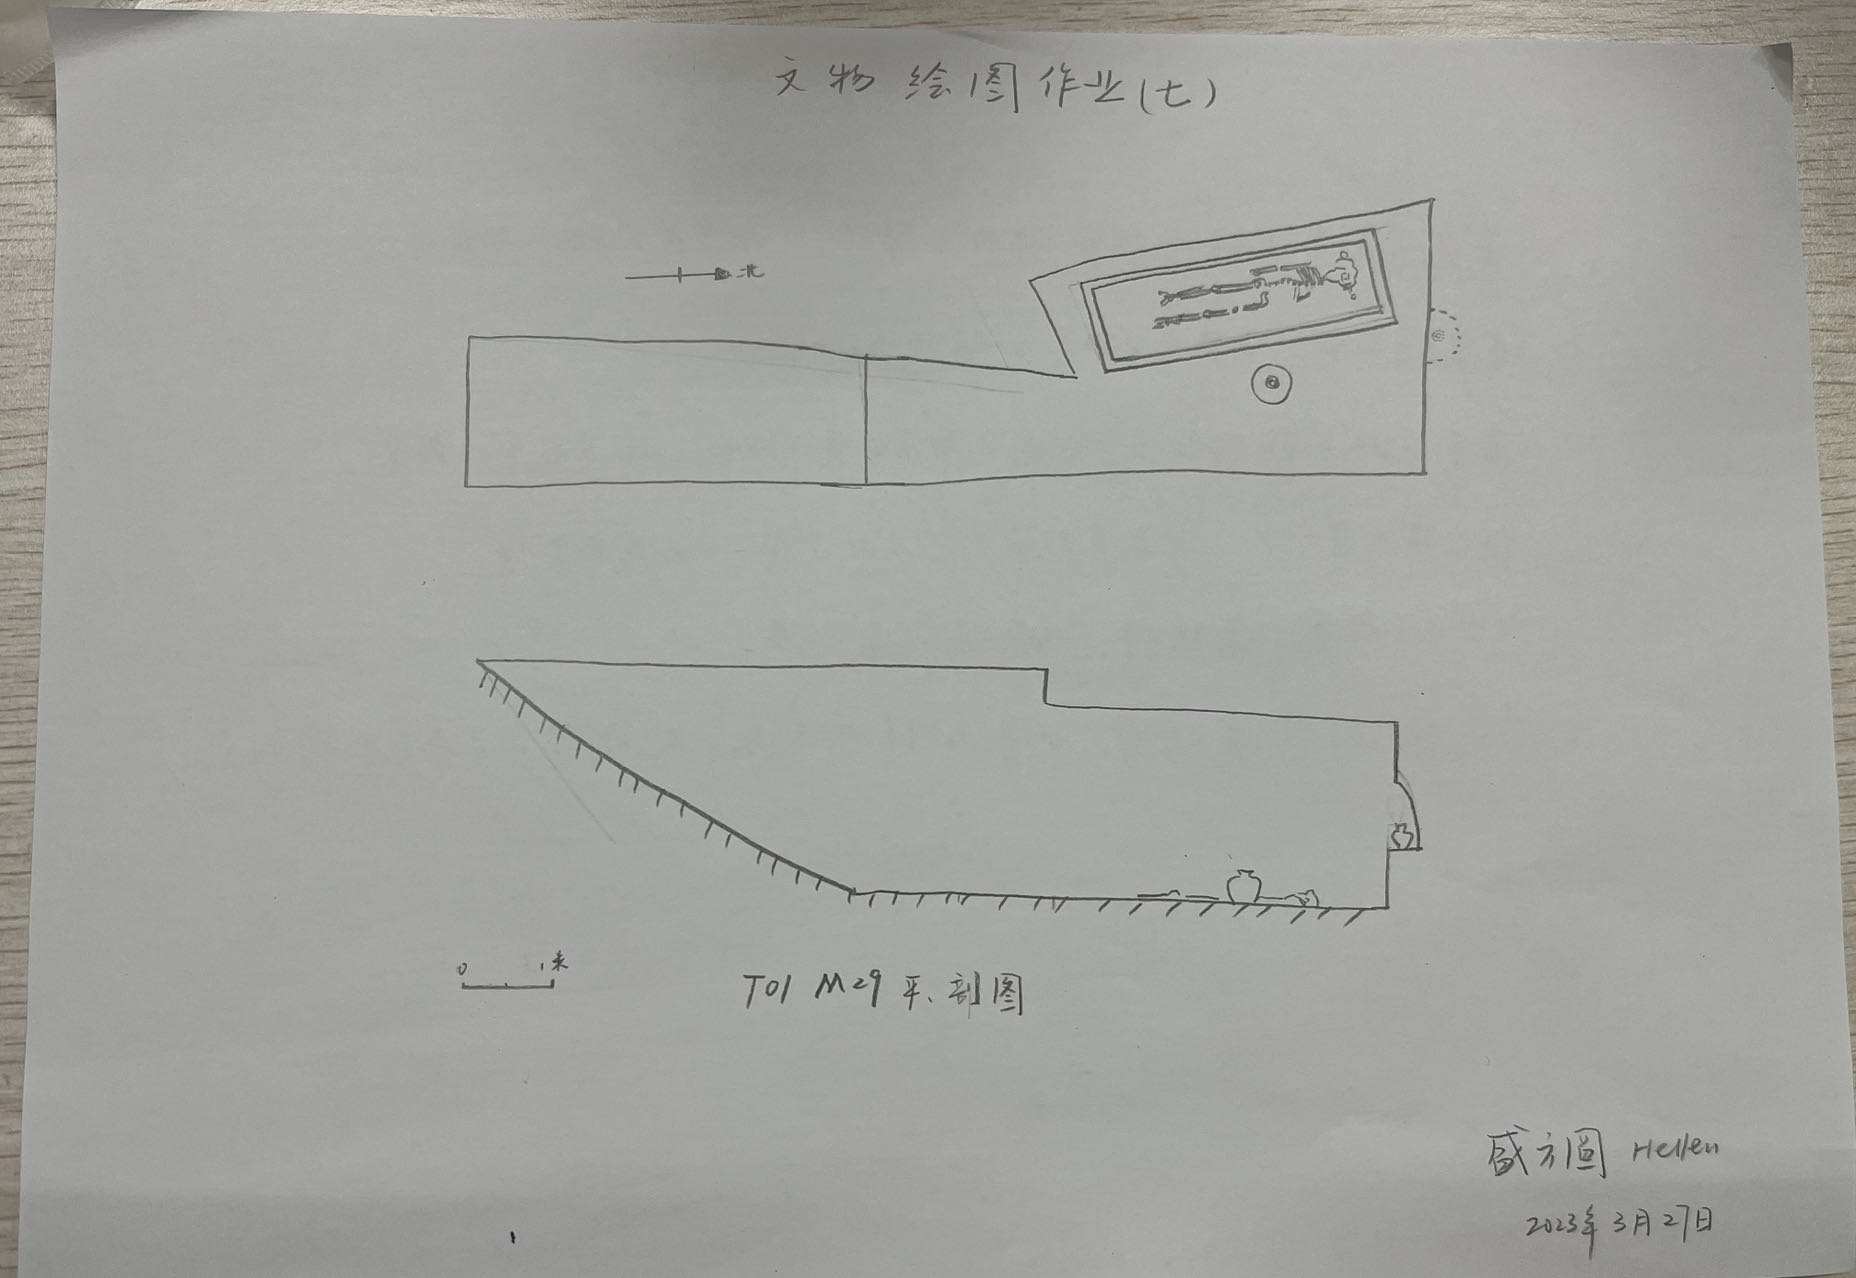 文物绘图作业(七)
北
0 1米
T01 M29 平、剖图
盛方圆 Hellen
2023年3月27日